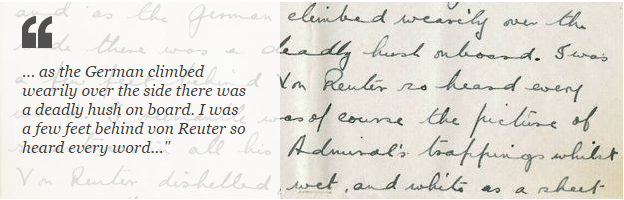 “
... as the German climbed
wearily over the side there was
a deadly hush on board. I was
a few feet behind von Reuter so
heard every word..."
and as the German climbed wearily over the
side there was a deadly hush onboard. I was
behind Von Reuter so heard every
was of course the picture of
all his Admiral's trappings whilst
Von Reuter dishelled, wet, and white as a sheet